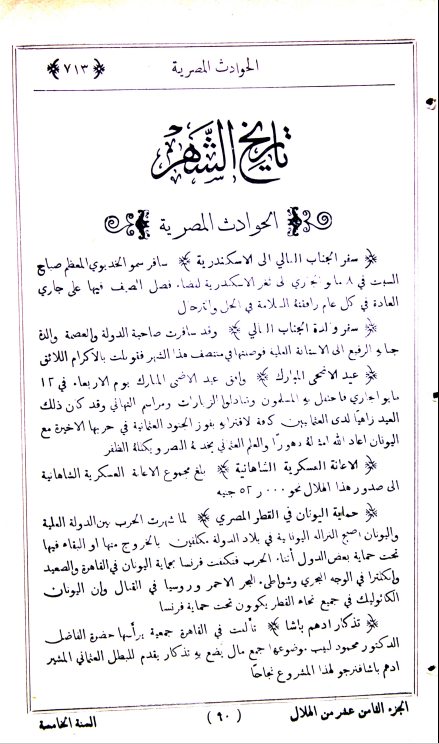 الحوادث المصرية
﴿ ٧١٣ ﴾
تاريخ الشهر
الحوادث المصرية
﴿ سفر الجناب العالي الى الاسكندرية ﴾ سافر سمو الخديوي المعظم صباح
السبت في ٨ مايو الجاري الى ثغر الاسكندرية لقضاء فصل الصيف فيها على جاري
العادة في كل عام رافقته السلامة في الحل والترحال
﴿ سفر والدة الجناب العالي ﴾ وقد سافرت صاحبة الدولة والعصمة والدة
جنابه الرفيع الى الاستانة العلية فوصلتها في منتصف هذا الشهر فقوبلت بالاكرام اللائق
﴿ عيد الاضحى المبارك ﴾ وافق عيد الاضحى المبارك يوم الاربعاء في ١٢
مايو الجاري فاحتفل به المسلمون وتبادلوا الزيارات ومراسم التهاني وقد كان ذلك
العيد زاهيًا لدى العثمانيين كافة لاقترانه بفوز الجنود العثمانية في حربها الاخيرة مع
اليونان اعاد الله امثاله دهورًا والعلم العثماني يخدمه النصر ويكلله الظفر
﴿ الاعانة العسكرية الشاهانية ﴾ بلغ مجموع الاعانة العسكرية الشاهانية
الى صدور هذا الهلال نحو ٥٢٫٠٠٠ جنيه
﴿ حماية اليونان في القطر المصري ﴾ لما شهرت الحرب بين الدولة العلية
واليونان اصبح النزالة اليونانية في بلاد الدولة مكلفين بالخروج منها او البقاء فيها
تحت حماية بعض الدول أثناء الحرب فتكفلت فرنسا بحماية اليونان في القاهرة والصعيد
وانكلترا في الوجه البحري وشواطئ البحر الاحمر وروسيا في القنال وان اليونان
الكاثوليك في جميع انحاء القطر يكونون تحت حماية فرنسا
﴿ تذكار ادهم باشا ﴾ تألفت في القاهرة جمعية يرأسها حضرة الفاضل
الدكتور محمود لبيب موضوعها جمع مال يصنع به تذكار يقدم للبطل العثماني المشير
ادهم باشا فنرجو لهذا المشروع نجاحًا
الجزء الثامن عشر من الهلال
( ٩٠ )
السنة الخامسة